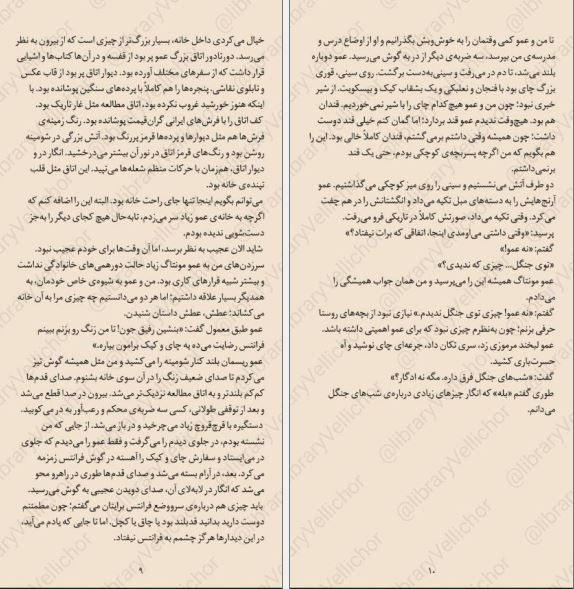 خیال می‌کردی داخل خانه، بسیار بزرگ‌تر از چیزی است که از بیرون به نظر
می‌رسد. دورتادور اتاق بزرگ عمو پر بود از قفسه و در آن‌ها کتاب‌ها و اشیایی
قرار داشت که از سفرهای مختلف آورده بود. دیوار اتاق پر بود از قاب عکس
و تابلوی نقاشی. پنجره‌ها را هم کاملاً با پرده‌های سنگین پوشانده بود. با
اینکه هنوز خورشید غروب نکرده بود، اتاق مطالعه مثل غار تاریک بود.
کف اتاق را با فرش‌های ایرانی گران‌قیمت پوشانده بود. رنگ زمینه‌ی
فرش‌ها هم مثل دیوارها و پرده‌ها قرمز پررنگ بود. آتش بزرگی در شومینه
روشن بود و رنگ‌های قرمز اتاق در نور آن بیشتر می‌درخشید. انگار در و
دیوار اتاق، هم‌زمان با حرکات منظم شعله‌ها می‌تپید. این اتاق مثل قلب
تپنده‌ی خانه بود.
می‌توانم بگویم اینجا تنها جای راحت خانه بود. البته این را اضافه کنم که
اگرچه به خانه‌ی عمو زیاد سر می‌زدم، تابه‌حال هیچ کجای دیگر را به‌جز
دست‌شویی ندیده بودم.
شاید الان عجیب به نظر برسد، اما آن وقت‌ها برای خودم عجیب نبود.
سرزدن‌های من به عمو مونتاگ زیاد حالت دورهمی‌های خانوادگی نداشت
و بیشتر شبیه قرارهای کاری بود. من و عمو به شیوه‌ی خاص خودمان، به
همدیگر بسیار علاقه داشتیم؛ اما هر دو می‌دانستیم چه چیزی مرا به آن خانه
می‌کشاند: عطش، عطش داستان شنیدن.
عمو طبق معمول گفت: «بنشین رفیق جون! تا من زنگ رو بزنم ببینم
فرانتس رضایت می‌ده یه چای و کیک برامون بیاره.»
عمو ریسمان بلند کنار شومینه را می‌کشید و من مثل همیشه گوش تیز
می‌کردم تا صدای ضعیف زنگ را در آن سوی خانه بشنوم. صدای قدم‌ها
کم‌کم بلندتر و به اتاق مطالعه نزدیک‌تر می‌شد. بیرون در صدا قطع می‌شد
و بعد از توقفی طولانی، کسی سه ضربه‌ی محکم و رعب‌آور به در می‌کوبید.
دستگیره با قرچ‌قروچ زیاد می‌چرخید و در باز می‌شد. از جایی که من
نشسته بودم، در جلوی دیدم را می‌گرفت و فقط عمو را می‌دیدم که جلوی
در می‌ایستاد و سفارش چای و کیک را آهسته در گوش فرانتس زمزمه
می‌کرد. بعد، در آرام بسته می‌شد و صدای قدم‌ها طوری در راهرو محو
می‌شد که انگار در لابه‌لای آن، صدای دویدن عجیبی به گوش می‌رسید.
باید چیزی هم درباره‌ی سرووضع فرانتس برایتان می‌گفتم؛ چون مطمئنم
دوست دارید بدانید قدبلند بود یا چاق یا کچل. اما تا جایی که یادم می‌آید،
در این دیدارها هرگز چشمم به فرانتس نیفتاد.
۹
تا من و عمو کمی وقتمان را به خوش‌وبش بگذرانیم و او از اوضاع درس و
مدرسه‌ی من بپرسد، سه ضربه‌ی دیگر از در به گوش می‌رسید. عمو دوباره
بلند می‌شد، تا دم در می‌رفت و سینی‌به‌دست برگشت. روی سینی، قوری
بزرگ چای بود با فنجان و نعلبکی و یک بشقاب کیک و بیسکویت. از شیر
خبری نبود؛ چون من و عمو هیچ‌کدام چای را با شیر نمی‌خوردیم. قندان
هم بود. هیچ‌وقت ندیدم عمو قند بردارد؛ اما گمان کنم خیلی قند دوست
داشت؛ چون همیشه وقتی داشتم برمی‌گشتم، قندان کاملاً خالی بود. این را
هم بگویم که من اگرچه پسربچه‌ی کوچکی بودم، حتی یک قند
برنمی‌داشتم.
دو طرف آتش می‌نشستیم و سینی را روی میز کوچکی می‌گذاشتیم. عمو
آرنج‌هایش را به دسته‌های مبل تکیه می‌داد و انگشتانش را در هم چفت
می‌کرد. وقتی تکیه می‌داد، صورتش کاملاً در تاریکی فرو می‌رفت.
پرسید: «وقتی داشتی می‌اومدی اینجا، اتفاقی که برات نیفتاد؟»
گفتم: «نه عمو!»
«توی جنگل... چیزی که ندیدی؟»
عمو مونتاگ همیشه این را می‌پرسید و من همان جواب همیشگی را
می‌دادم.
گفتم: «نه عمو! چیزی توی جنگل ندیدم.» نیازی نبود از بچه‌های روستا
حرفی بزنم؛ چون به‌نظرم چیزی نبود که برای عمو اهمیتی داشته باشد.
عمو لبخند مرموزی زد، سری تکان داد، جرعه‌ای چای نوشید و آه
حسرت‌باری کشید.
گفت: «شب‌های جنگل فرق داره. مگه نه ادگار؟»
طوری گفتم «بله» که انگار چیزهای زیادی درباره‌ی شب‌های جنگل
می‌دانم.
۱۰
@libraryVellichor